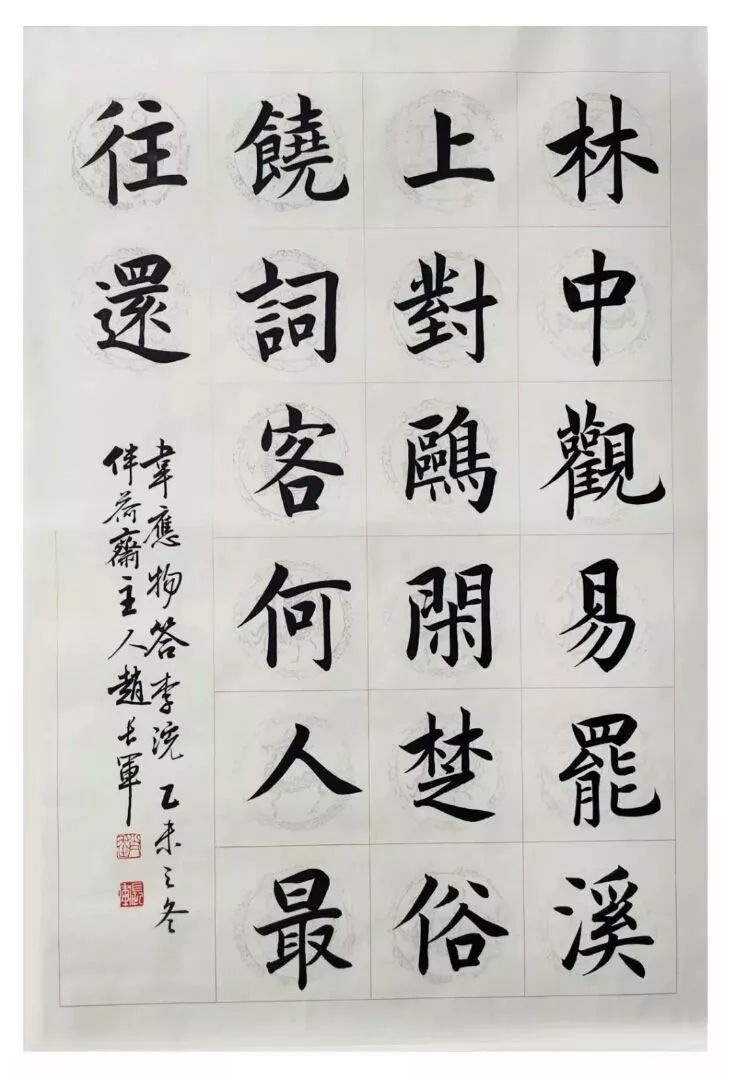 林中觀易罷溪
上對鷗閑楚俗
饒詞客何人最
往還
韋應物答李浣 乙未之冬
伴荷齋主人趙長軍